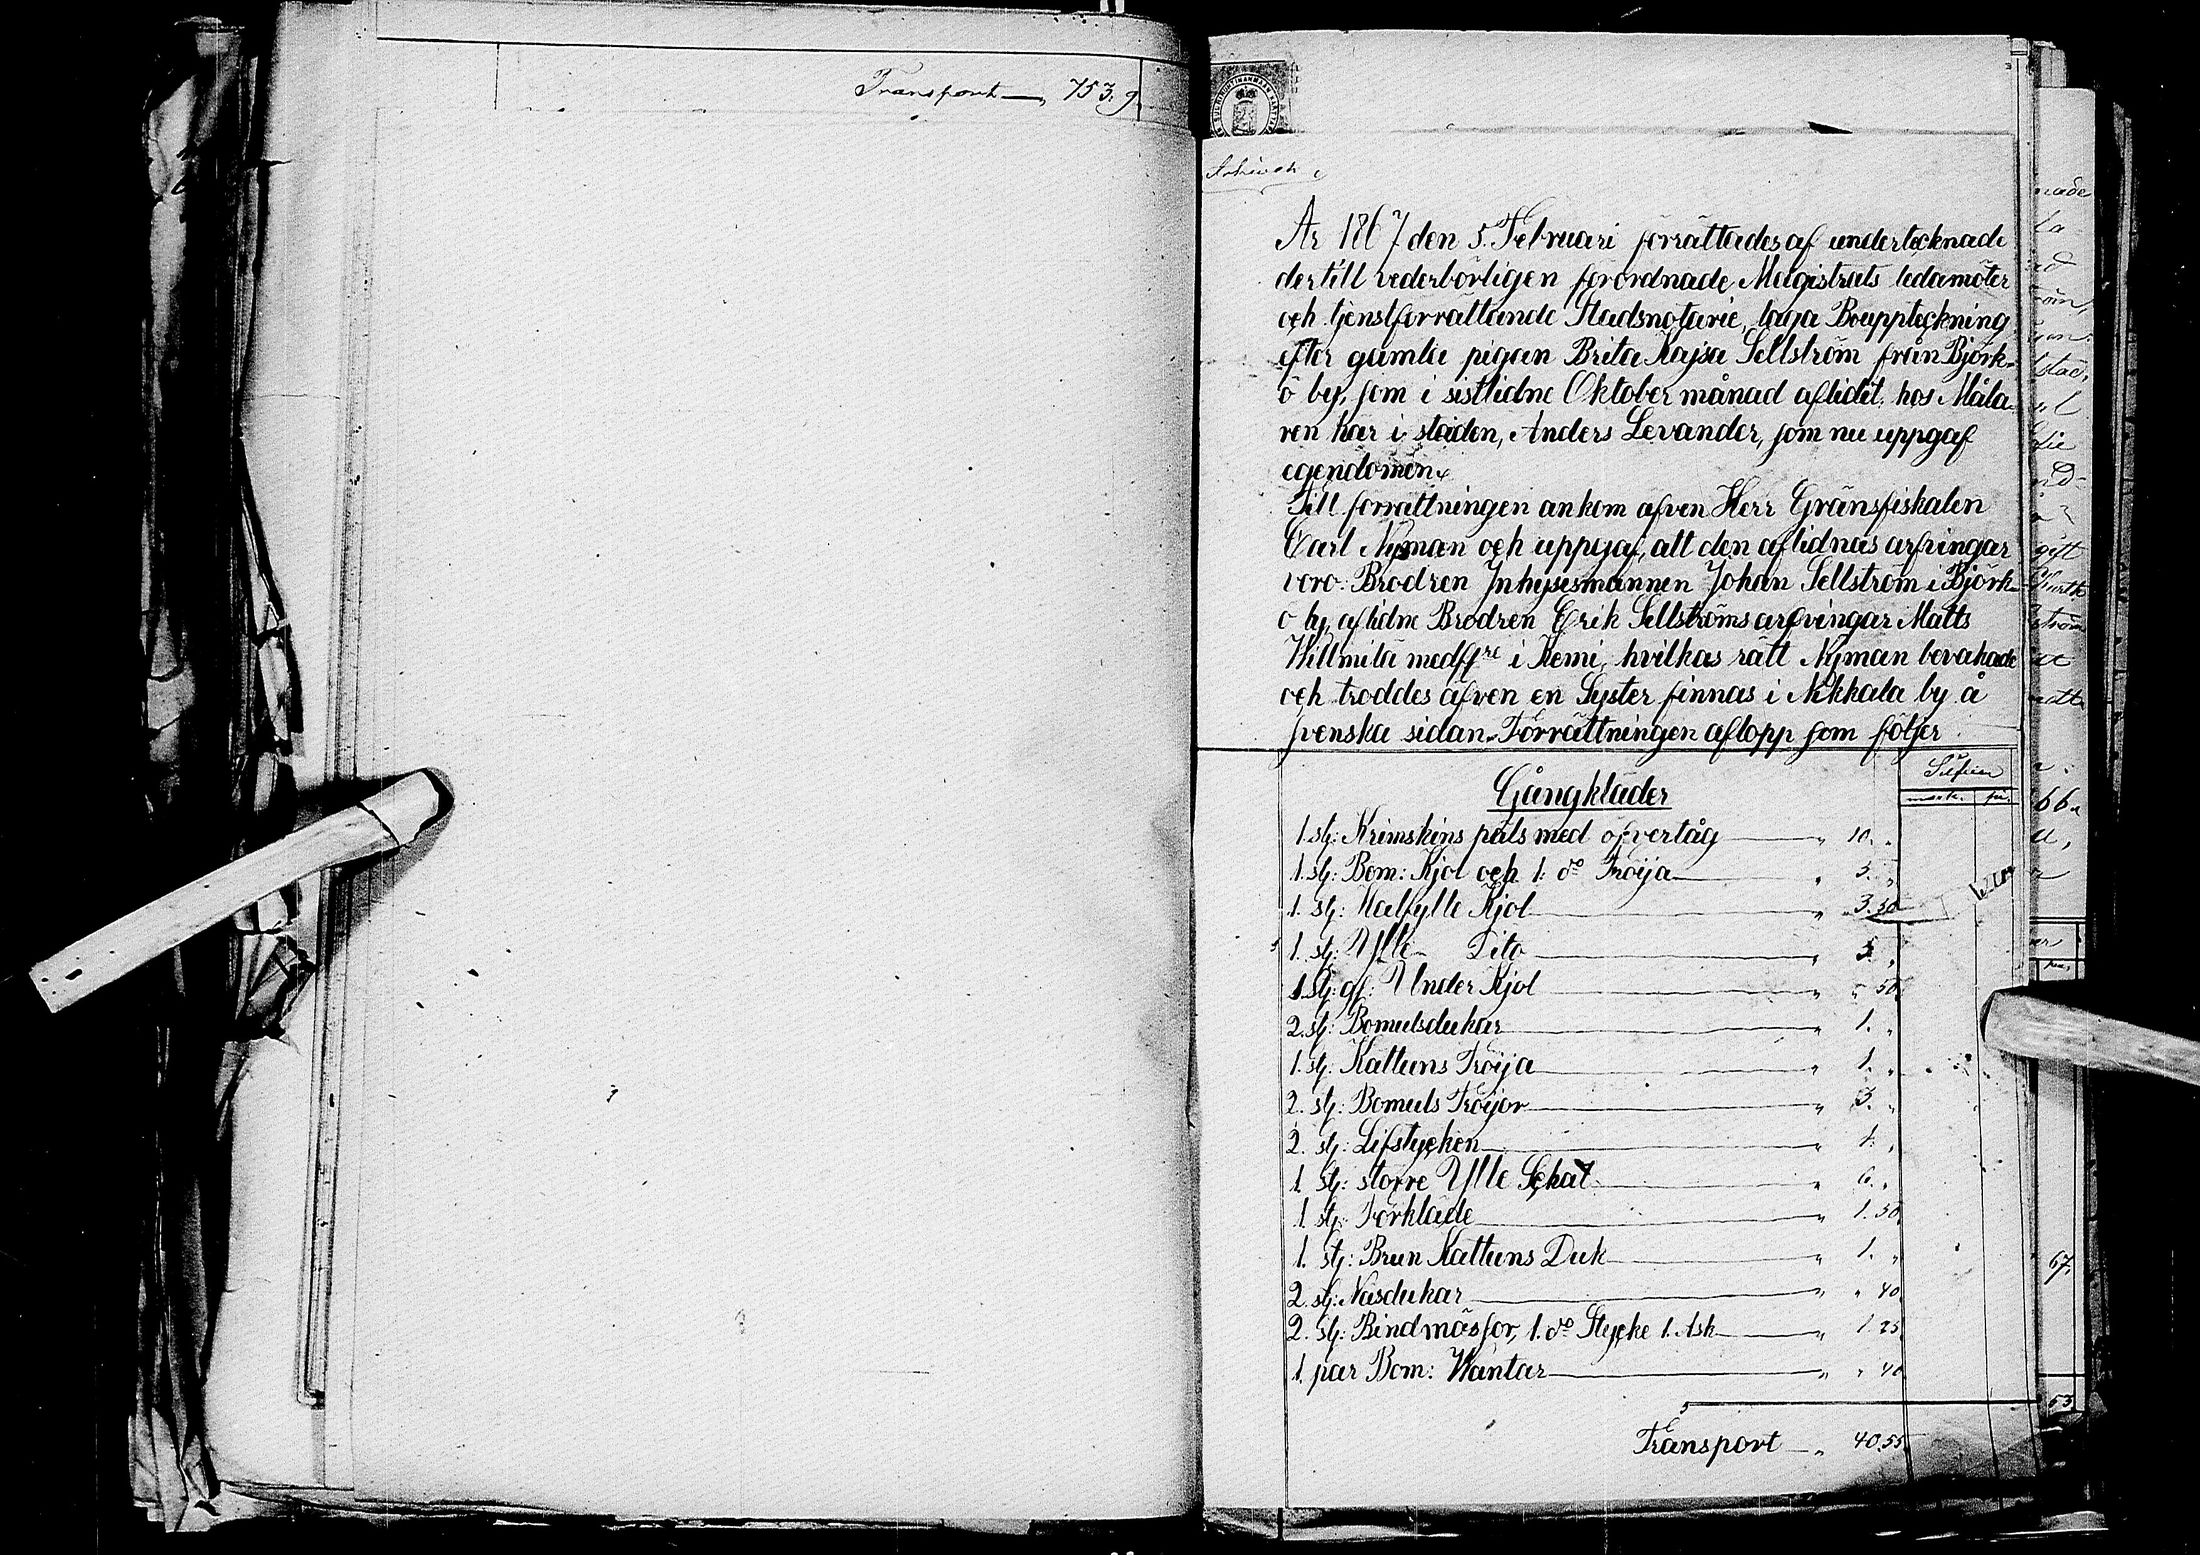 Transport — " 753. 9
År 1867 den 5. Februari förrättades af undertecknade
dertill vederbörligen förordnade Magistrats ledamöter
och tjenstförrättande Stadsnotarie, laga Bouppteckning
efter gamla pigan Brita Kajsa Sellström från Björk-
ö by, som i sistlidne Oktober månad aflidit hos Måla-
ren här i staden, Anders Levander, som nu uppgaf
egendomen.
Till förrättningen ankom äfven Herr Gränsfiskalen
Carl Nyman och uppgaf, att den aflidnas arfvingar
voro: Brodren Inhysesmannen Johan Sellström i Björk-
ö by, aflidne Brodren Erik Sellströms arfvingar Matts
Willmila med flre i Kemi, hvilkas rätt Nyman bevakade
och troddes äfven en Syster finnas i Nikkala by å
svenska sidan. Förrättningen aflopp som följer:
Silfver
Gångkläder
mark. pi.
1. st: Krimskins päls med öfvertåg — " 10. "
1. st: Bom: Kjol och 1. do Tröija — " 5. "
1. st: Halfylle Kjol — " 3. 50
1. st: Ylle Dito — " 5. "
1. st: gf: Under Kjol — " " 50
2. st: Bomulsdukar — " 1. "
1. st: Kattuns Tröija — " 1. "
2. st: Bomuls Tröijor — " 3. "
2. st: Lifstycken — " 1. "
1. st: större Ylle Schal — " 6. "
1. st: Förkläde — " 1. 50
1. st: Brun Kattuns Duk — " 1. "
2. st: Näsdukar — " " 40
2. st: Bindmössor, 1. do Stycke 1. Ask — " 1. 25
1. par Bom: Wantar — " " 40
Transport — " 40. 55